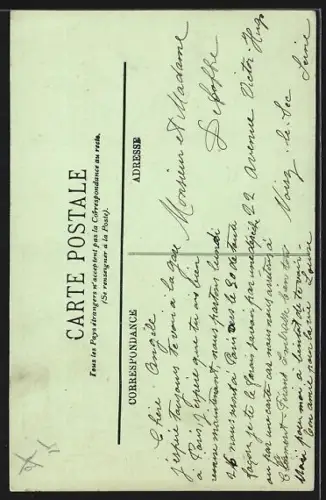 CARTE POSTALE
Tous les Pays étrangers n'acceptent pas la Correspondance au recto.
(Se renseigner à la Poste).
CORRESPONDANCE
ADRESSE
Chère Angèle
J'espère toujours te voir à la gare
à Paris j'espère que tu vas bien
maintenant nous partons lundi
26 nous seront à Paris vers le 30 de toute
façon je te le ferais savoir par
ou par une carte car nous nous arrêtons à
Clermont Ferrand Embrasse bien ton
Mari pour moi à bientôt de te voir
Ton amie pour la vie Louise
Monsieur et Madame
22 Avenue Victor Hugo
Noisy-le-Sec
Seine